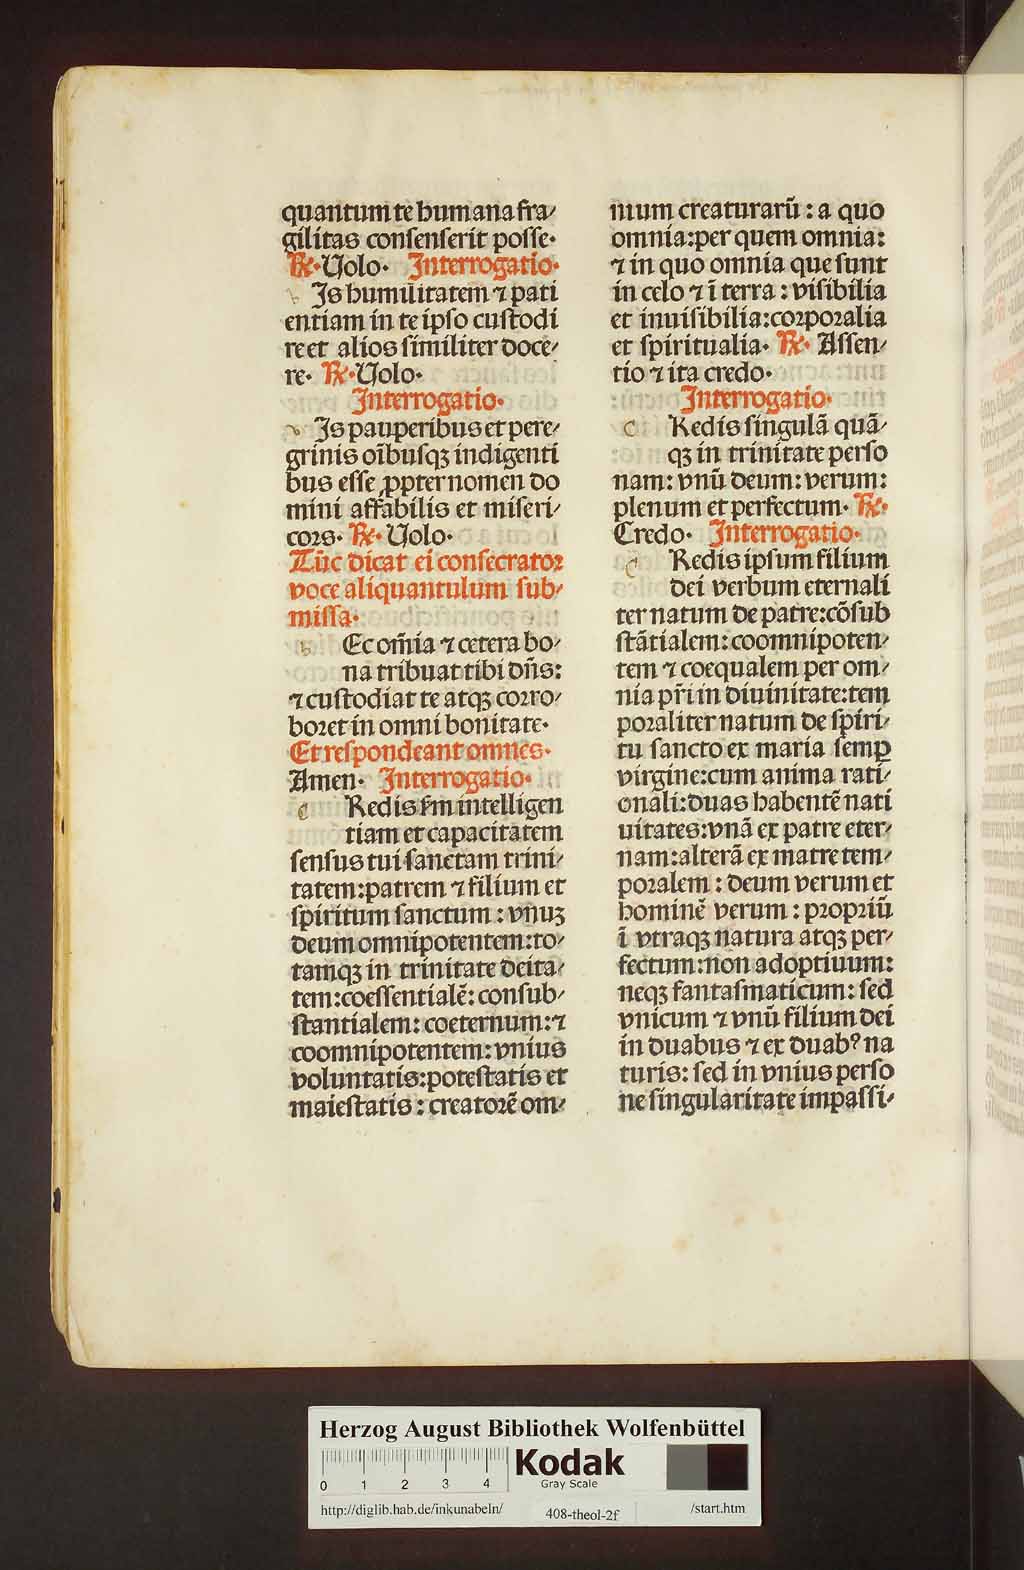 quantum te humana fra/
gilitas consenserit posse.
℟. Uolo. Interrogatio.
v Is humilitatem ⁊ pati
entiam in te ipso custodi
re et alios similiter doce/
re. ℟. Uolo.
Interrogatio.
v Is pauperibus et pere/
grinis oı̄busqꝫ indigenti
bus esse ꝓpter nomen do
mini affabilis et miseri/
cors. ℟. Uolo.
Tūc dicat ei consecrator
voce aliquantulum sub/
missa.
h Ec om̄ia ⁊ cetera bo/
na tribuat tibi dn̄s:
⁊ custodiat te atqꝫ corro/
boret in omni bonitate.
Et respondeant omnes.
Amen. Interrogatio.
c Redis ẜm intelligen
tiam et capacitatem
sensus tui sanctam trini/
tatem: patrem ⁊ filium et
spiritum sanctum: vnuꝫ
deum omnipotentem: to/
tamqꝫ in trinitate deita/
tem: coessentialē: consub/
stantialem: coeternum: ⁊
coomnipotentem: vnius
voluntatis: potestatis et
maiestatis: creatorē om/
nium creaturarū: a quo
omnia: per quem omnia:
⁊ in quo omnia que sunt
in celo ⁊ ī terra: visibilia
et inuisibilia: corporalia
et spiritualia. ℟. Assen/
tio ⁊ ita credo.
Interrogatio.
c Redis singulā quā/
qꝫ in trinitate perso
nam: vnū deum: verum:
plenum et perfectum. ℟.
Credo. Interrogatio.
c Redis ipsum filium
dei verbum eternali
ter natum de patre: cōsub
stātialem: coomnipoten/
tem ⁊ coequalem per om/
nia pr̄i in diuinitate: tem
poraliter natum de spiri/
tu sancto ex maria semꝑ
virgine: cum anima rati/
onali: duas habentē nati
uitates: vnā ex patre eter/
nam: alterā ex matre tem/
poralem: deum verum et
hominē verum: propriū
ī vtraqꝫ natura atqꝫ per/
fectum: non adoptiuum:
neqꝫ fantasmaticum: sed
vnicum ⁊ vnū filium dei
in duabus ⁊ ex duabꝰ na
turis: sed in vnius perso
ne singularitate impassi/
Herzog August Bibliothek Wolfenbüttel
0 1 2 3 4
Kodak
Gray Scale
http://diglib.hab.de/inkunabeln/ 408-theol-2f /start.htm